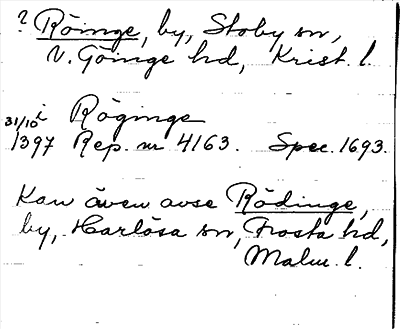 ? Röinge, by, Stoby sn,
V. Göinge hd, Krist. l.
i Röginge
31/10
1397 Rep. nr 4163. Spec. 1693.
Kan även avse Rödinge,
by, Harlösa sn, Frosta hd,
Malm. l.